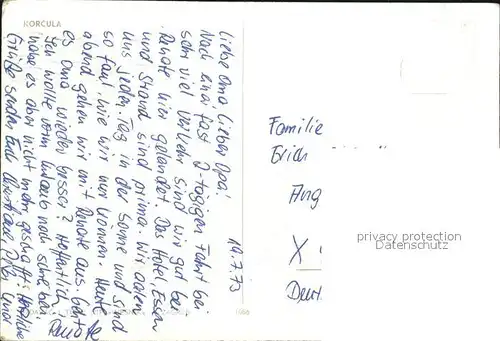 KORCULA
19.7.73
Liebe Oma, lieber Opa!
Nach einer fast 2-tägigen Fahrt bei
sehr viel Verkehr sind wir gut bei
Renate hier gelandet. Das Hotel, Essen
und Strand sind prima. Wir aalen
uns jeden Tag in der Sonne und sind
so faul wie wir nur können. Heute
abend gehen wir mit Renate aus. Geht
es Oma wieder besser? Hoffentlich
Ich wollte vorm Urlaub noch schreiben
habe es aber nicht mehr geschafft. Herzliche
Grüße senden Euch
Renate
Familie
Erich
privacy protection
Datenschutz
1066